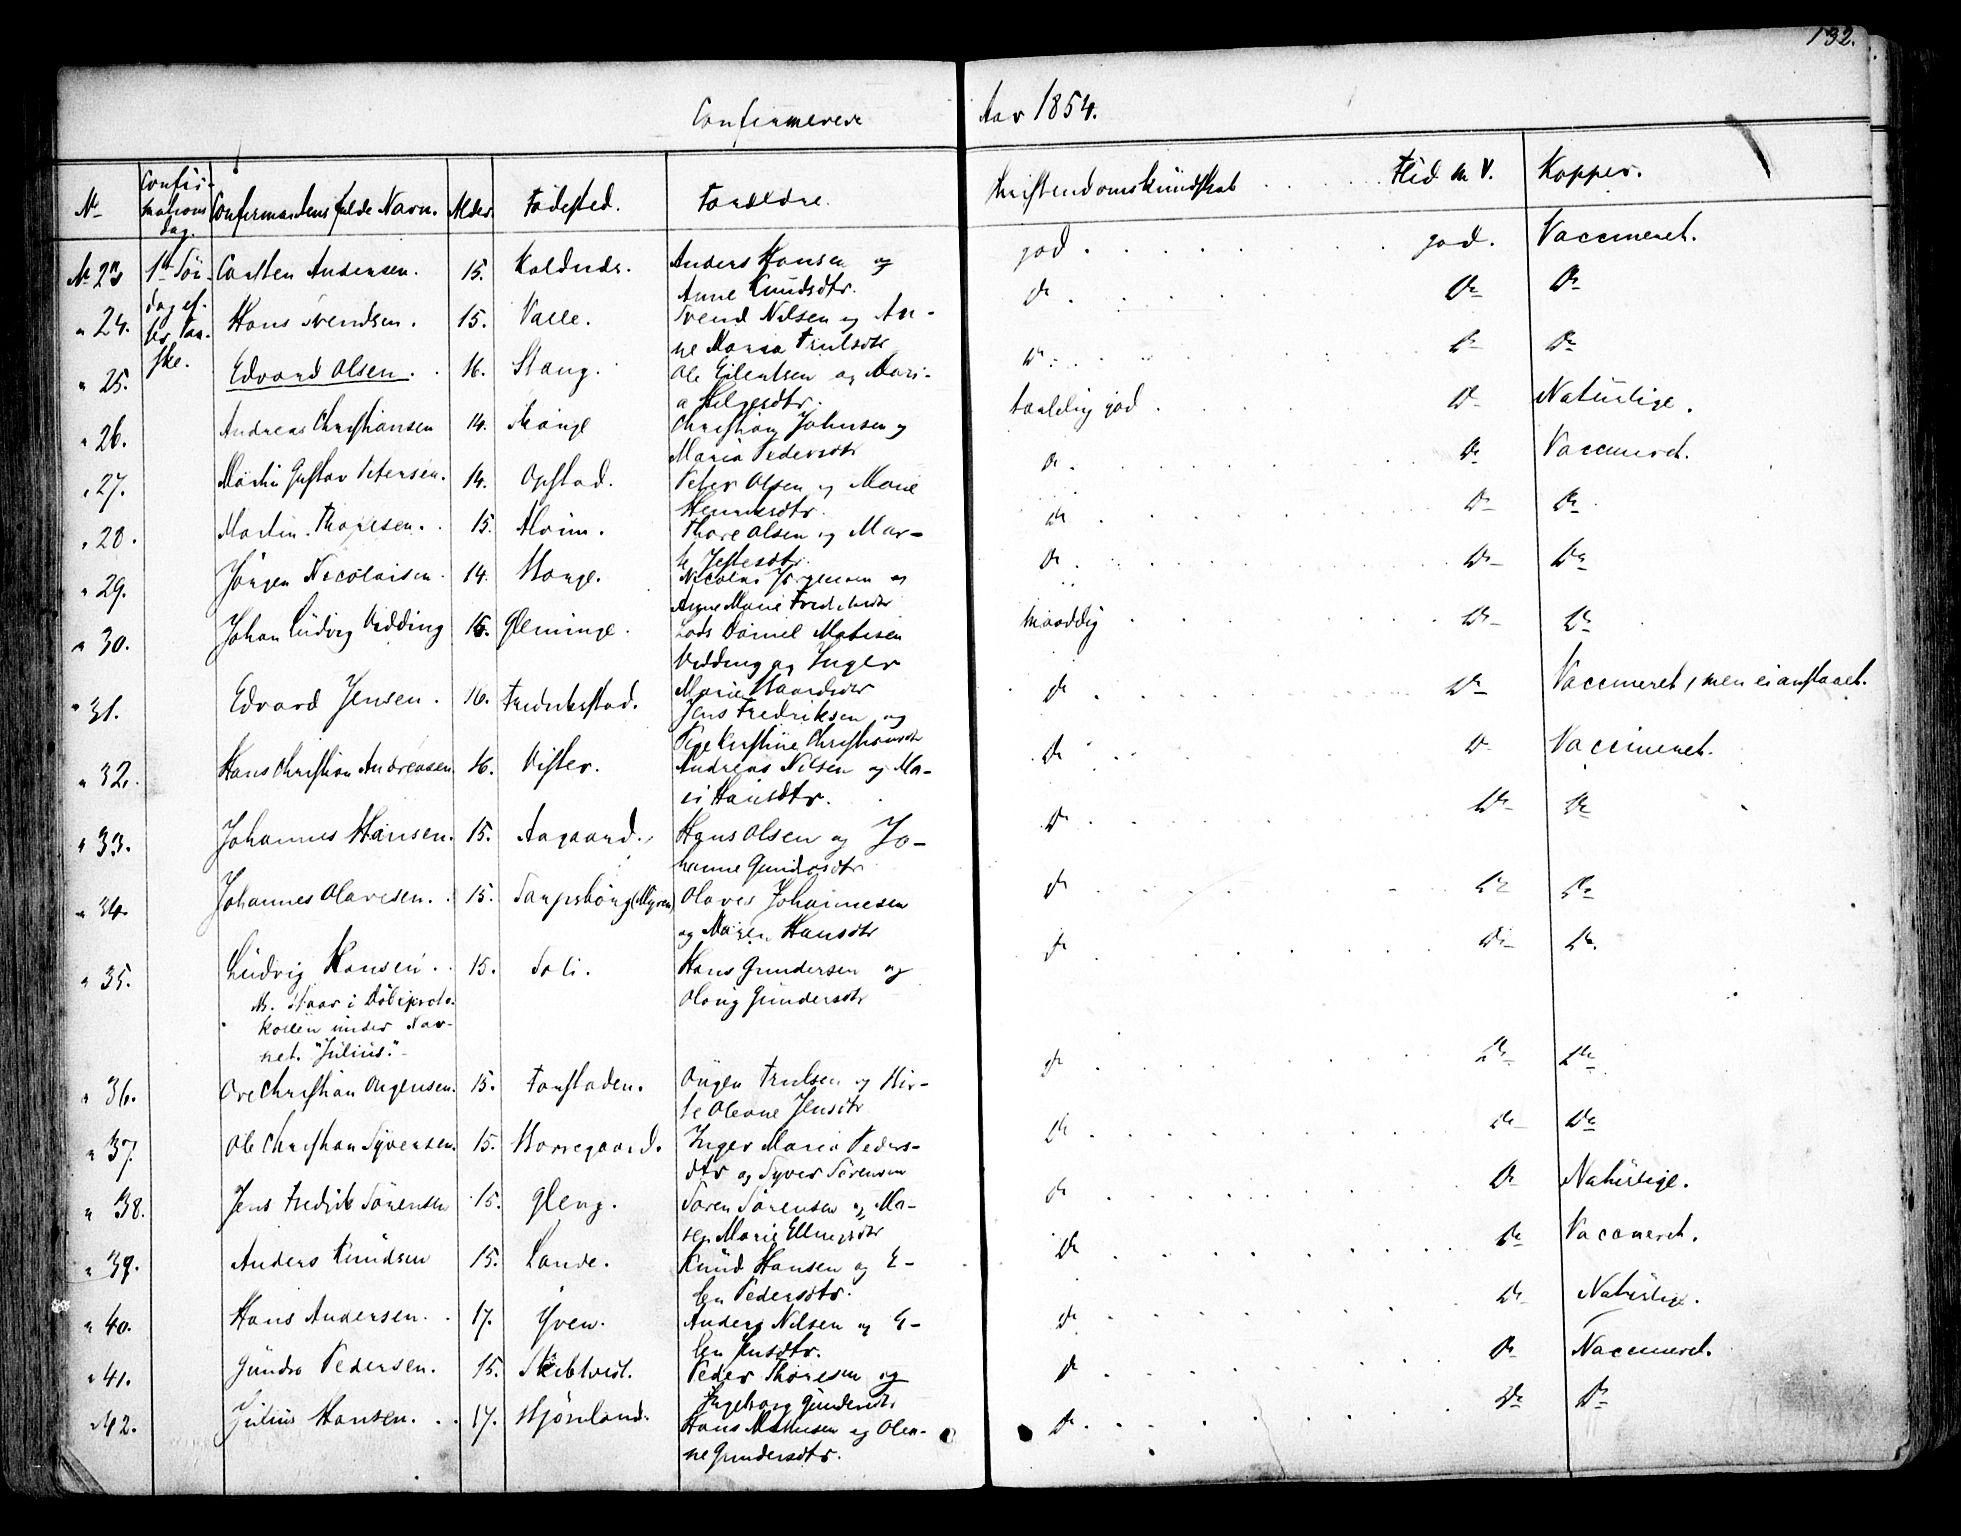 132.
Confirmerede Aar 1854.
No Confirmationsdag. Confirmandens fulde Navn. Alder. Fødested. Forældre. Christendomskundskab . . . . Flid m. V. Kopper.
No 23 1ste Søn- Carsten Andersen. 15. Anders Hansen og god . . . . god. Vaccineret.
dag ef- Anne Knudsdtr.
" 24. ter Paa- Hans Svendsen. 15. Valle. Svend Nilsen og An- Do . . . . Do Do
ske. ne Maria Trulsdtr
" 25. Edvard Olsen. 16. Stang. Ole Eilertsen og Mari- Do . . . . Do Do
a Helgesdtr.
" 26. Andreas Christiansen 14. Christian Johnsen og taalelig god . . . . Do Naturlige.
Maria Pedersdtr
" 27. Martin Gustav Petersen. 14. Opstad. Peter Olsen og Marie Do . . . . Do Vaccineret.
" 28. Martin Thoresen. 15. Thore Olsen og Mar- Do . . . . Do Do
" 29. Jörgen Nicolaisen 14. Nicolai Jörgensen og Do . . . . Do Do
Anne Marie
" 30. Johan Ludvig Vedding 15. Gleminge. Daniel Matisen maadelig . . . . Do Do
Vedding og Inger
Marie
" 31. Edvard Jensen. 16. Fredrikstad. Jens Fredriksen og Do . . . . Do Vaccineret, men ei anslaaet.
" 32. Hans Christian Andreasen 16. Vister. Andreas Nilsen og Ma- Do . . . . Do Vaccineret.
ri Hansdtr.
" 33. Johannes Hansen. 15. Aagaard. Hans Olsen og Jo- Do . . . . Do Do
hanne Gundersdtr
" 34. Johannes Olavesen. 15. Sarpsborg (Myren) Olaves Johannesen Do . . . . Do Do
og Maren Hansdtr
" 35. Ludvig Hansen. 15. Soli. Hans Gundersen og Do . . . . Do Do.
Nb. Staar i Döbeproto- Olavig Gundersdtr
kollen under Nav-
net "Julius".
" 36. Ove Christian Örgensen. 15. Torsladen. Örgen Trulsen og Do . . . . Do Do
Oleane Jensdtr
" 37. Ole Christian Syversen. 15. Borregaard. Inger Maria Peders- Do . . . . Do Do
dtr og Syver Sörensen
" 38. Jens Fredrik Sörensen 15. Gleng. Sören Sörensen og Ma- Do . . . . Do Naturlige.
ren Marie Ellingsdtr
" 39. Anders Knudsen 15. Lande. Knud Hansen og E- Do . . . . Do Vaccineret.
len Pedersdtr.
" 40. Hans Andersen. 17. Yven. Anders Nilsen og E- Do . . . . Do Naturlige.
len Jensdtr.
" 41. Gundro Pedersen. 15. Skibtvedt. Peder Thoresen og Do . . . . Do Vaccineret.
Ingeborg Gundersdtr
" 42. Julius Hansen. 17. Hjörnland. Hans Mathisen og Olea- Do . . . . Do Do
ne Gundersdtr.